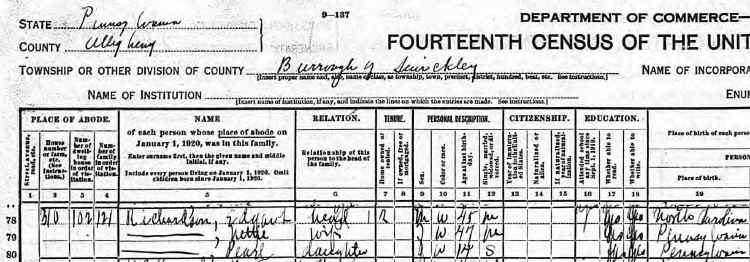 9-137
STATE Pennsylvania
DEPARTMENT OF COMMERCE—
COUNTY Allegheny
FOURTEENTH CENSUS OF THE UNIT
TOWNSHIP OR OTHER DIVISION OF COUNTY Burrough of Sewickley
[Insert proper name and, also, name of class, as township, town, precinct, district, hundred, beat, etc. See instructions.]
NAME OF INCORPORA
NAME OF INSTITUTION
[Insert name of institution, if any, and indicate the lines on which the entries are made. See instructions.]
ENUM
PLACE OF ABODE. NAME RELATION. TENURE. PERSONAL DESCRIPTION. CITIZENSHIP. EDUCATION.
of each person whose place of abode on January 1, 1920, was in this family.
Enter surname first, then the given name and middle initial, if any.
Include every person living on January 1, 1920. Omit children born since January 1, 1920.
Relationship of this person to the head of the family.
Place of birth of each perso
PERSON
Place of birth.
Street, avenue, road, etc.
House number or farm, etc. (See instructions.)
Number of dwelling house in order of visitation.
Number of family in order of visitation.
Home owned or rented.
If owned, free or mortgaged.
Sex.
Color or race.
Age at last birthday.
Single, married, widowed, or divorced.
Year of immigration to the United States.
Naturalized or alien.
If naturalized, year of naturalization.
Attended school any time since Sept. 1, 1919.
Whether able to read.
Whether able to write.
1 2 3 4 5 6 7 8 9 10 11 12 13 14 15 16 17 18 19
78 310 102 121 Richardson, head R M W 45 M Yes Yes North Carolina
79 , Nettie wife F W 47 M Yes Yes Pennsylvania
80 , Pearl daughter F W 14 S Yes Yes Pennsylvania